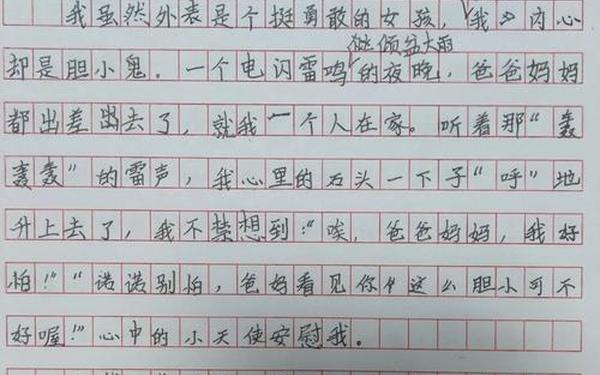 我虽然外表是个挺勇敢的女孩，我内心
却是胆小鬼。一个电闪雷鸣倾盆大雨的夜晚，爸爸妈妈
都出差出去了，就我一个人在家。听着那“轰
轰轰”的雷声，我心里的石头一下子“呼”地
升上去了，我不禁想到：“唉，爸爸妈妈，我好
怕！”“诺诺别怕，爸妈看见你这么胆小可不
好喔！”心中的小天使安慰我。